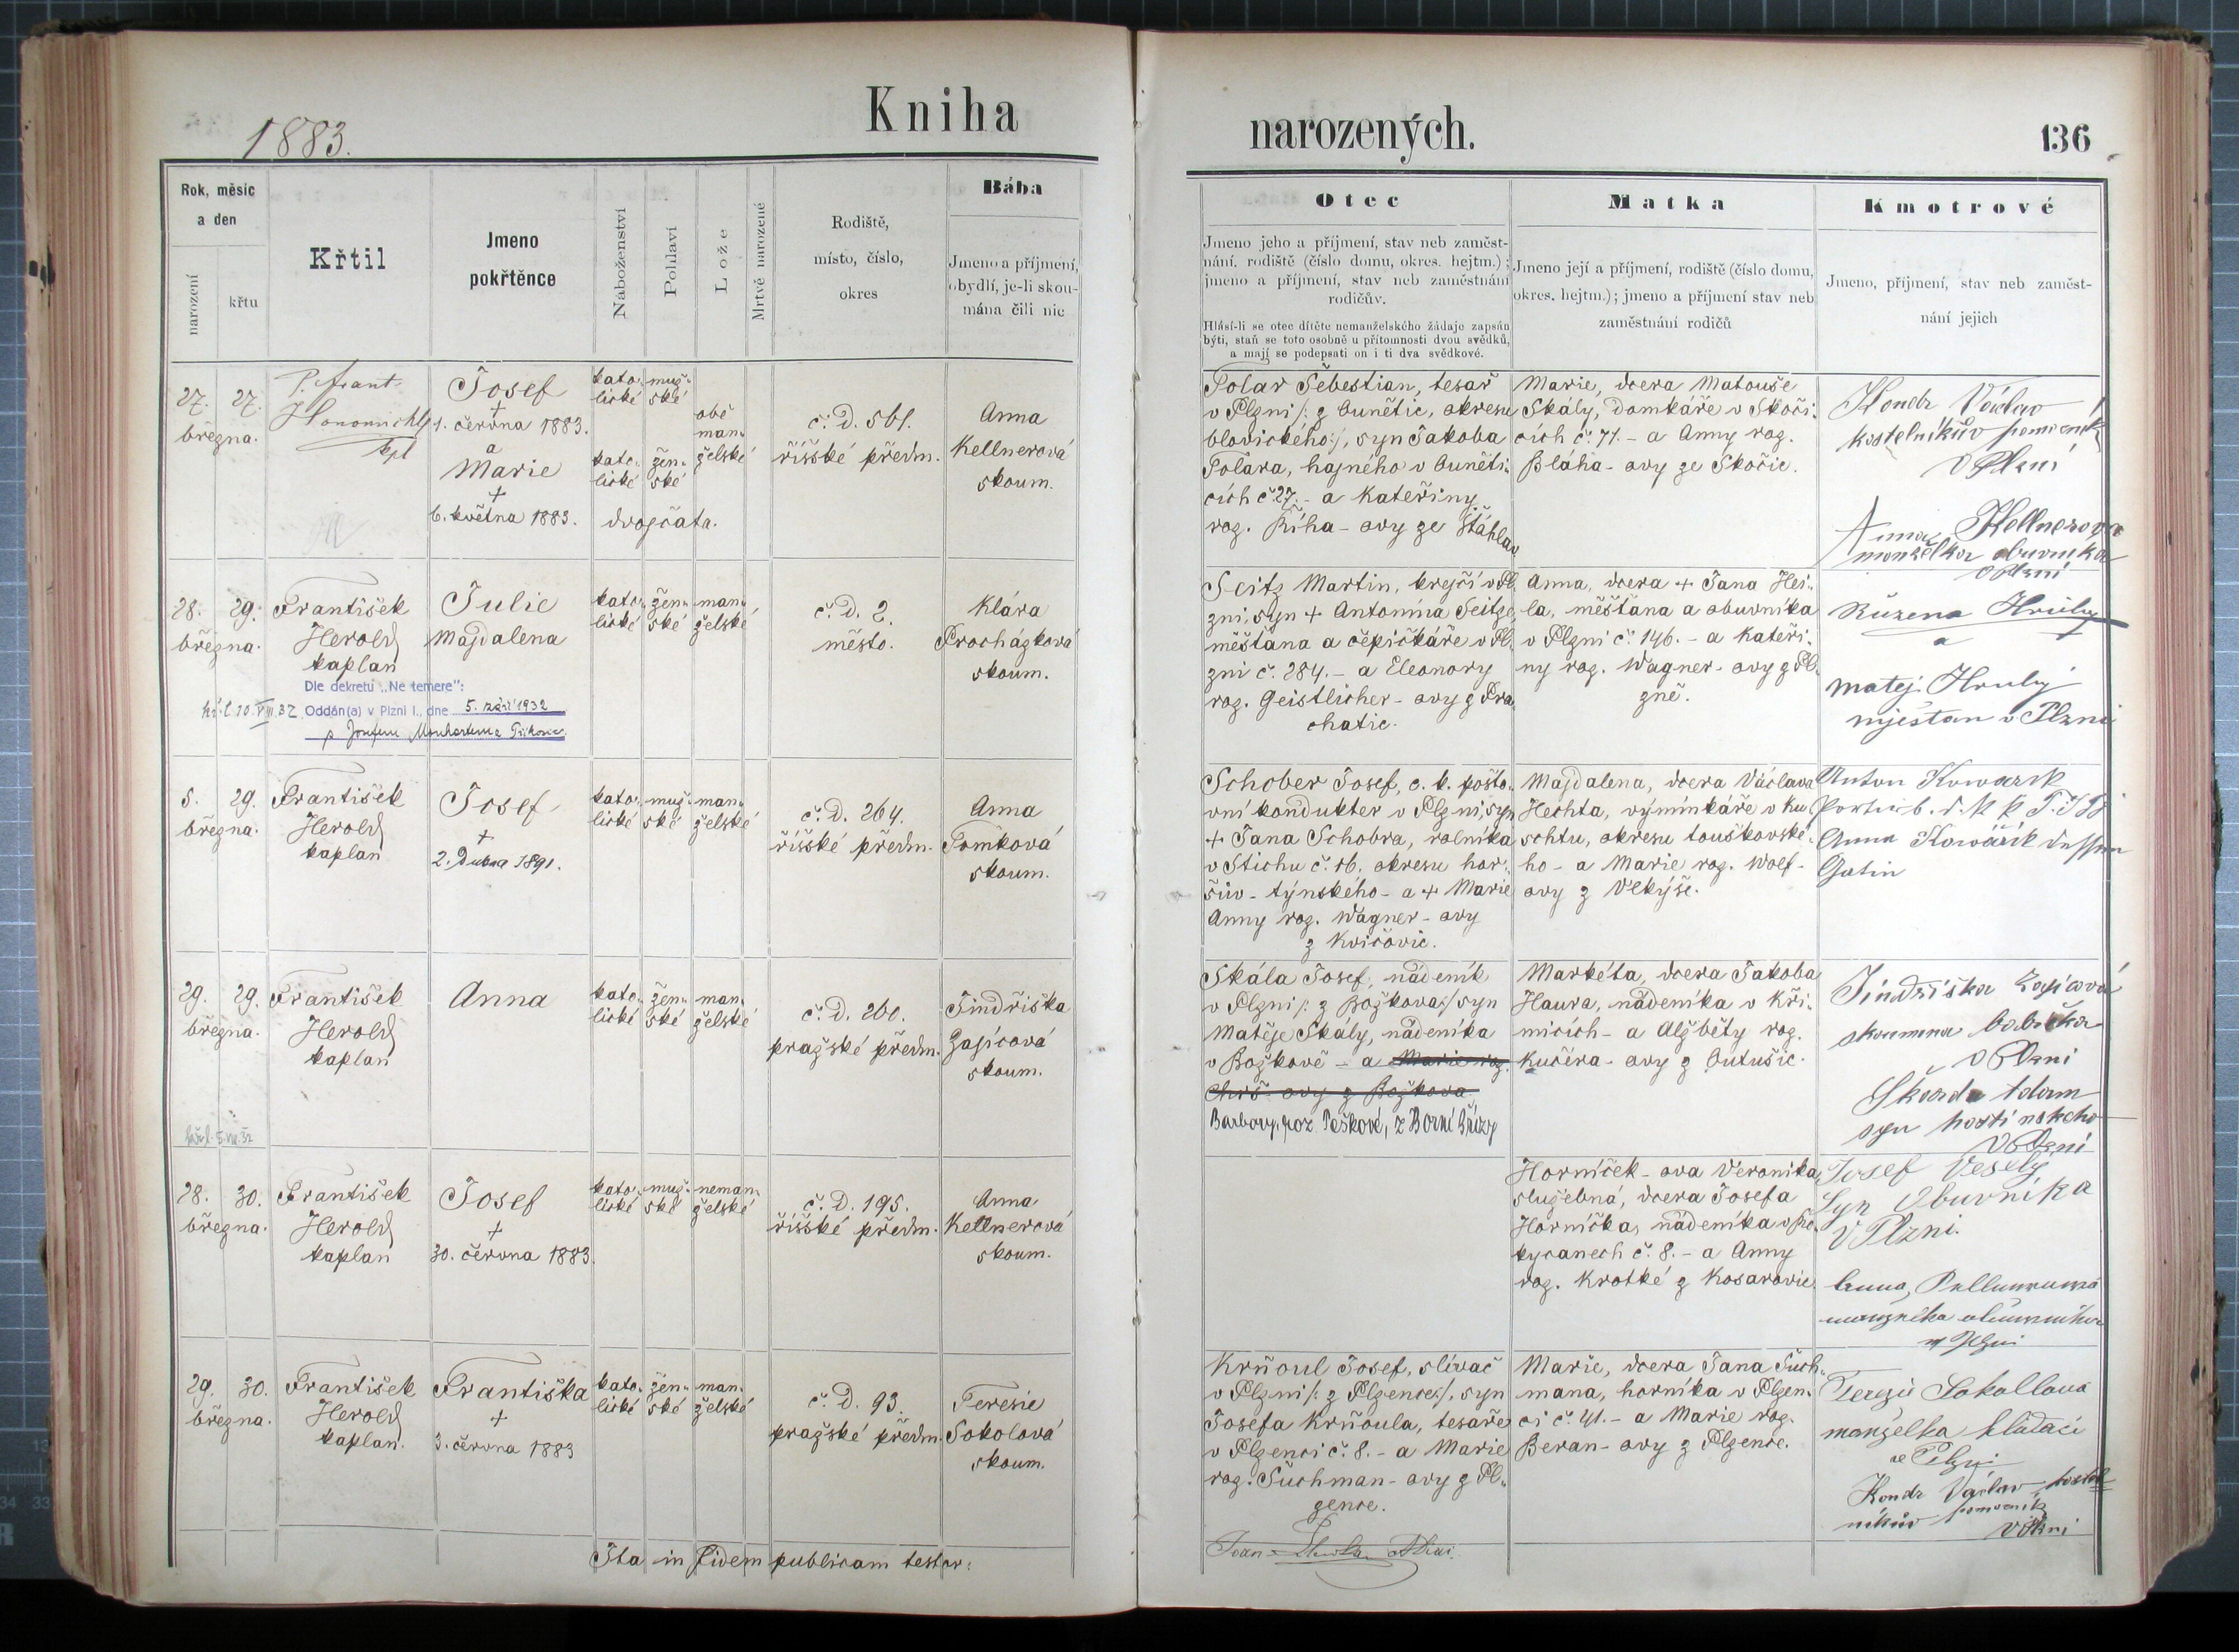 Kniha
narozených.
136
1883.
Rok, měsíc
a den
narození
křtu
Křtil
Jmeno
pokřtěnce
Náboženství
Pohlaví
Lože
Mrtvě narozené
Rodiště,
místo, číslo,
okres
Bába
Jmeno a příjmení,
obydlí, je-li skou-
mána čili nic
Otec
Jmeno jeho a příjmení, stav neb zaměst-
nání, rodiště (číslo domu, okres. hejtm.);
jmeno a příjmení, stav neb zaměstnání
rodičův.
Hlásí-li se otec dítěte nemanželského žádaje zapsán
býti, staň se toto osobně u přítomnosti dvou svědků,
a mají se podepsati on i ti dva svědkové.
Matka
Jmeno její a příjmení, rodiště (číslo domu,
okres. hejtm.); jmeno a příjmení stav neb
zaměstnání rodičů
Kmotrové
Jmeno, příjmení, stav neb zaměst-
nání jejich
27. 27.
března.
P. Frant.
kpl
Josef
+
1. června 1883.
a
Marie
+
6. května 1883.
kato-
lické
muž-
ské
kato-
lické
žen-
ské
obě
man-
želské
dvojčata.
č. D. 561.
říšské předm.
Anna
Kellnerová
skoum.
Polar Šebestian, tesař
v Plzni /: z Bunětic, okresu
blovického:/, syn Jakoba
Polara, hajného v Buněti-
cích č. 27. - a Kateřiny
roz. Říha - ovy ze Štáhlav
Marie, dcera Matouše
Skály, domkáře v Skoři-
cích č. 71. - a Anny roz.
Bláha - ovy ze Skořic.
Kondr Václav
kostelníkův pomocník
v Plzni
Anna Kellnerova
manželka obuvníka
v Plzni
28. 29.
března.
František
Herold
kaplan
Dle dekretu „Ne temere":
Oddán(a) v Plzni I., dne 5. září 1932
Julie
Majdalena
kato-
lické
žen-
ské
man-
želské
č. D. 2.
město.
Klára
Procházková
skoum.
Seitz Martin, krejčí v Pl-
zni, syn + Antonína Seitze,
měšťana a čepičkáře v Pl-
zni č. 284. - a Eleonory
roz. Geistlicher - ovy z Pra-
chatic.
Anna, dcera + Jana Hei-
la, měšťana a obuvníka
v Plzni č. 146. - a Kateři-
ny roz. Wagner - ovy z Pl-
zně.
Růzena Hruby
a
Matej Hruby
mješťan v Plzni
5. 29.
března.
František
Herold
kaplan
Josef
+
2. Dubna 1891.
kato-
lické
muž-
ské
man-
želské
č. D. 264.
říšské předm.
Anna
Tomková
skoum.
Schober Josef, c. k. pošto-
vní kondukter v Plzni, syn
+ Jana Schobra, rolníka
v Stichu č. 16. okresu hor-
šův - týnského - a + Marie
Anny roz. Wagner - ovy
z Kvíčovic.
Majdalena, dcera Václava
Hechta, výminkáře v Ku-
schtu, okresu touškovské-
ho - a Marie roz. Wolf -
ovy z Vekýše.
Anton Kowarik
Anna Kowářik dessen
Gatin
29. 29.
března.
František
Herold
kaplan
Anna
kato-
lické
žen-
ské
man-
želské
č. D. 260.
pražské předm.
Jindřiška
Zajícová
skoum.
Skála Josef, nádeník
v Plzni /: z Božkova:/ syn
Matěje Skály, nádeníka
v Božkově - a Marie roz.
ovy z Božkova
Barbory, roz. Peškové, z Horní Břízy
Markéta, dcera Jakoba
Haura, nádeníka v Kři-
micích - a Alžběty roz.
Kučera - ovy z Outušic.
Jindřiška Zajícová
skoumna babička
v Plzni
Škarda Adam
syn hostinskeho
v Plzni
28. 30.
března.
František
Herold
kaplan
Josef
+
30. června 1883.
kato-
lické
muž-
ské
neman-
želské
č. D. 195.
říšské předm.
Anna
Kellnerová
skoum.
Horníček - ova Veronika,
služebná, dcera Josefa
Horníčka, nádeníka v Ro-
kycanech č. 8. - a Anny
roz. Krotké z Kosařovic
Josef Veselý
Syn Obuvníka
V Plzni.
Anna Kellnerowa
manzelka
w Plzni
29. 30.
března.
František
Herold
kaplan.
Františka
+
3. června 1883
kato-
lické
žen-
ské
man-
želské
č. D. 93.
pražské předm.
Teresie
Sokolová
skoum.
Krňoul Josef, slívač
v Plzni /: z Plzence:/, syn
Josefa Krňoula, tesaře
v Plzenci č. 8. - a Marie
roz. Šuchman - ovy z Pl-
zence.
Marie, dcera Jana Šuch-
mana, horníka v Plzen-
ci č. 41. - a Marie roz.
Beran - ovy z Plzence.
Terezie Sokollova
manželka hlídače
v Plzni
Kondr Václav kostel
níkův pomocník
v Plzni
Ita in fidem publicam testor: